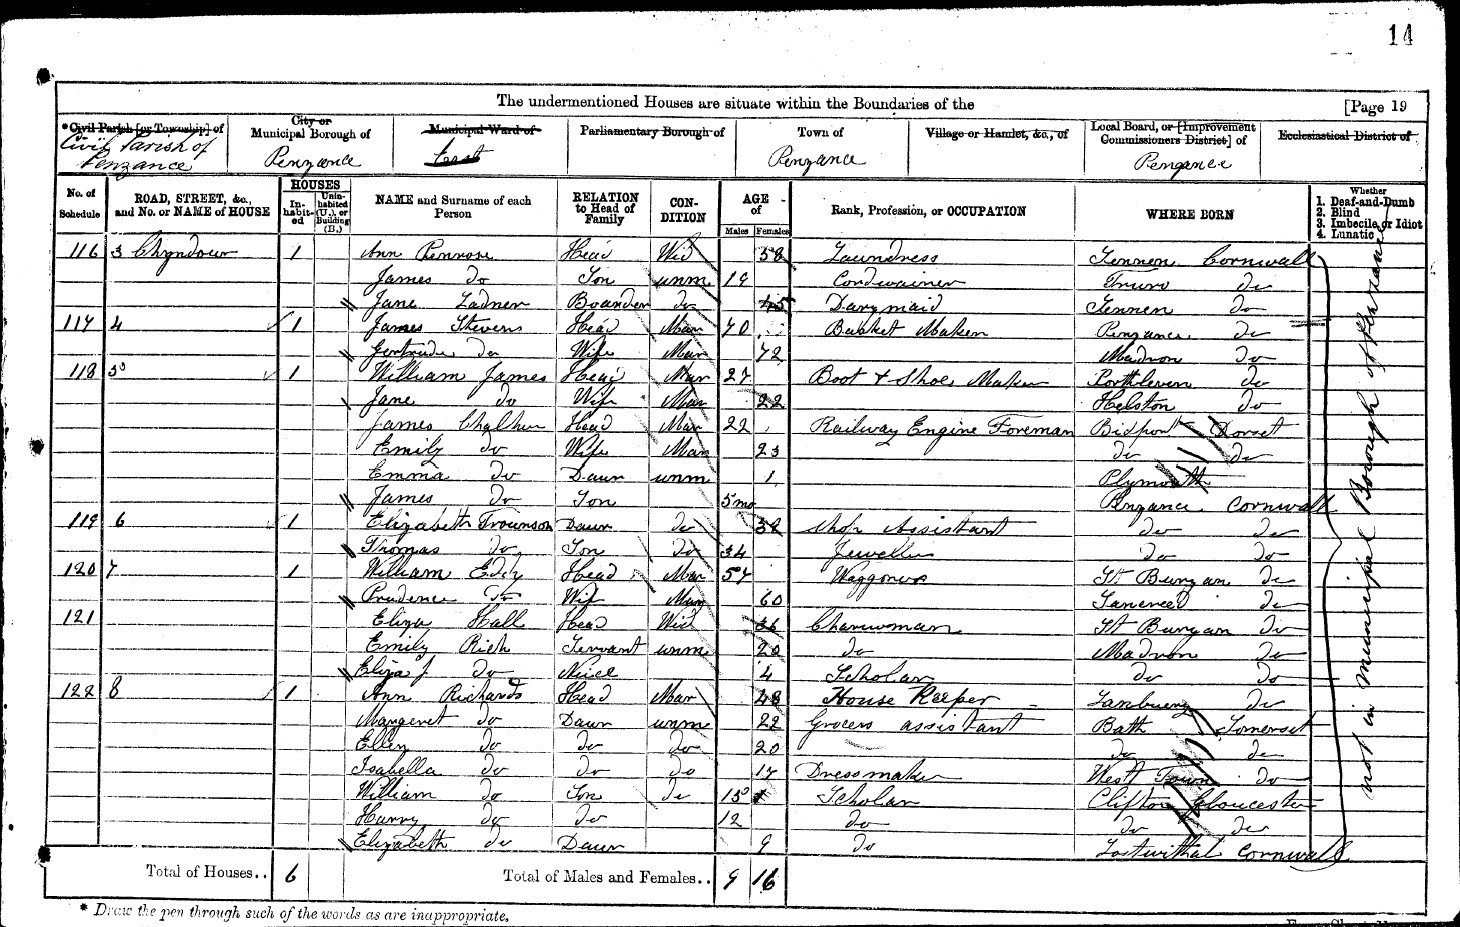 14
The undermentioned Houses are situate within the Boundaries of the [Page 19
*Civil Parish [or Township] of City or Municipal Borough of Municipal Ward of Parliamentary Borough of Town of Village or Hamlet, &c., of Local Board, or [Improvement Commissioners District] of Ecclesiastical District of
Civil Parish of Penzance Penzance East Penzance Penzance
No. of Schedule ROAD, STREET, &c., and No. or NAME of HOUSE HOUSES In-habit-ed Unin-habited (U.), or Building (B.) NAME and Surname of each Person RELATION to Head of Family CON-DITION AGE of Males Females Rank, Profession, or OCCUPATION WHERE BORN Whether 1. Deaf-and-Dumb 2. Blind 3. Imbecile or Idiot 4. Lunatic
116 3 Chyndour 1 Ann Penrose Head Wid 58 Laundress Sennen Cornwall
James do Son unm 19 Cordwainer Truro do
Jane Ladner Boarder do 45 Darymaid Sennen do
117 4 1 James Stevens Head Mar 70 Basket Maker Penzance do
Gertrude do Wife Mar 72 Madron do
118 5 1 William James Head Mar 27 Boot & Shoe Maker Porthleven do
Jane do Wife Mar 22 Helston do
James Head Mar 22 Railway Engine Foreman Bidport Dorset
Emily do Wife Mar 23 do do
Emma do Daur unm 1 Plymouth
James do Son 5 mo Penzance Cornwall
119 6 1 Elizabeth Trounson Daur do 32 Shop Assistant do do
Thomas do Son do 34 Jeweller do do
120 7 1 William Eddy Head Mar 57 Waggoner St Buryan do
Prudence do Wife Mar 60 Sancreed do
121 Eliza Hall Head Wid 36 Charwoman St Buryan do
Emily Rich Servant unm 20 do Madron do
Eliza J do Niece 4 Scholar do do
122 8 1 Ann Richards Head Mar 48 House Keeper do
Margeret do Daur unm 22 Grocers assistant Bath Somerset
Ellen do do do 20 do do
Isabella do do do 17 Dressmaker West Town do
William do Son do 15 Scholar Clifton Gloucester
Harry do do 12 do do do
Elizabeth do Daur 9 do Lostwithal Cornwall
not in municipal Borough of Penzance
Total of Houses.. 6 Total of Males and Females.. 9 16
* Draw the pen through such of the words as are inappropriate.